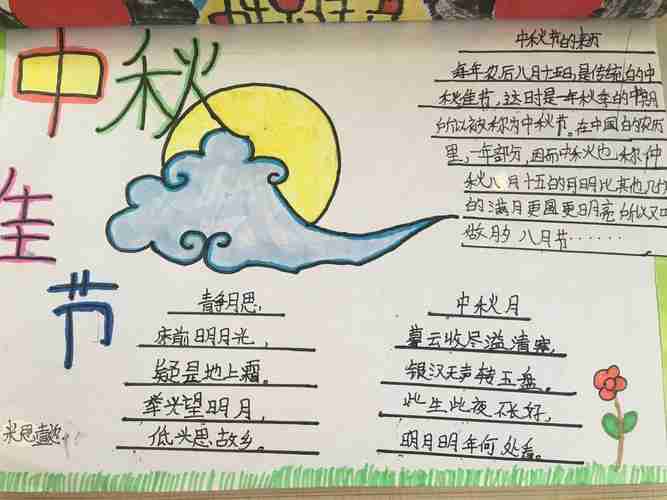 中秋
佳
节
中秋节的来历
每年农历八月十五日,是传统的中
秋佳节,这时是一年秋季的中期
所以被称为中秋节。在中国的农历
里,一年部分,因而中秋也称仲
秋八月十五的月明比其他几
的满月更圆更明亮所以又
做月的 八月节……
静月思:
床前明月光,
疑是地上霜。
举头望明月,
低头思故乡。
中秋月
暮云收尽溢清寒,
银汉无声转玉盘。
此生此夜不长好,
明月明年何处看。